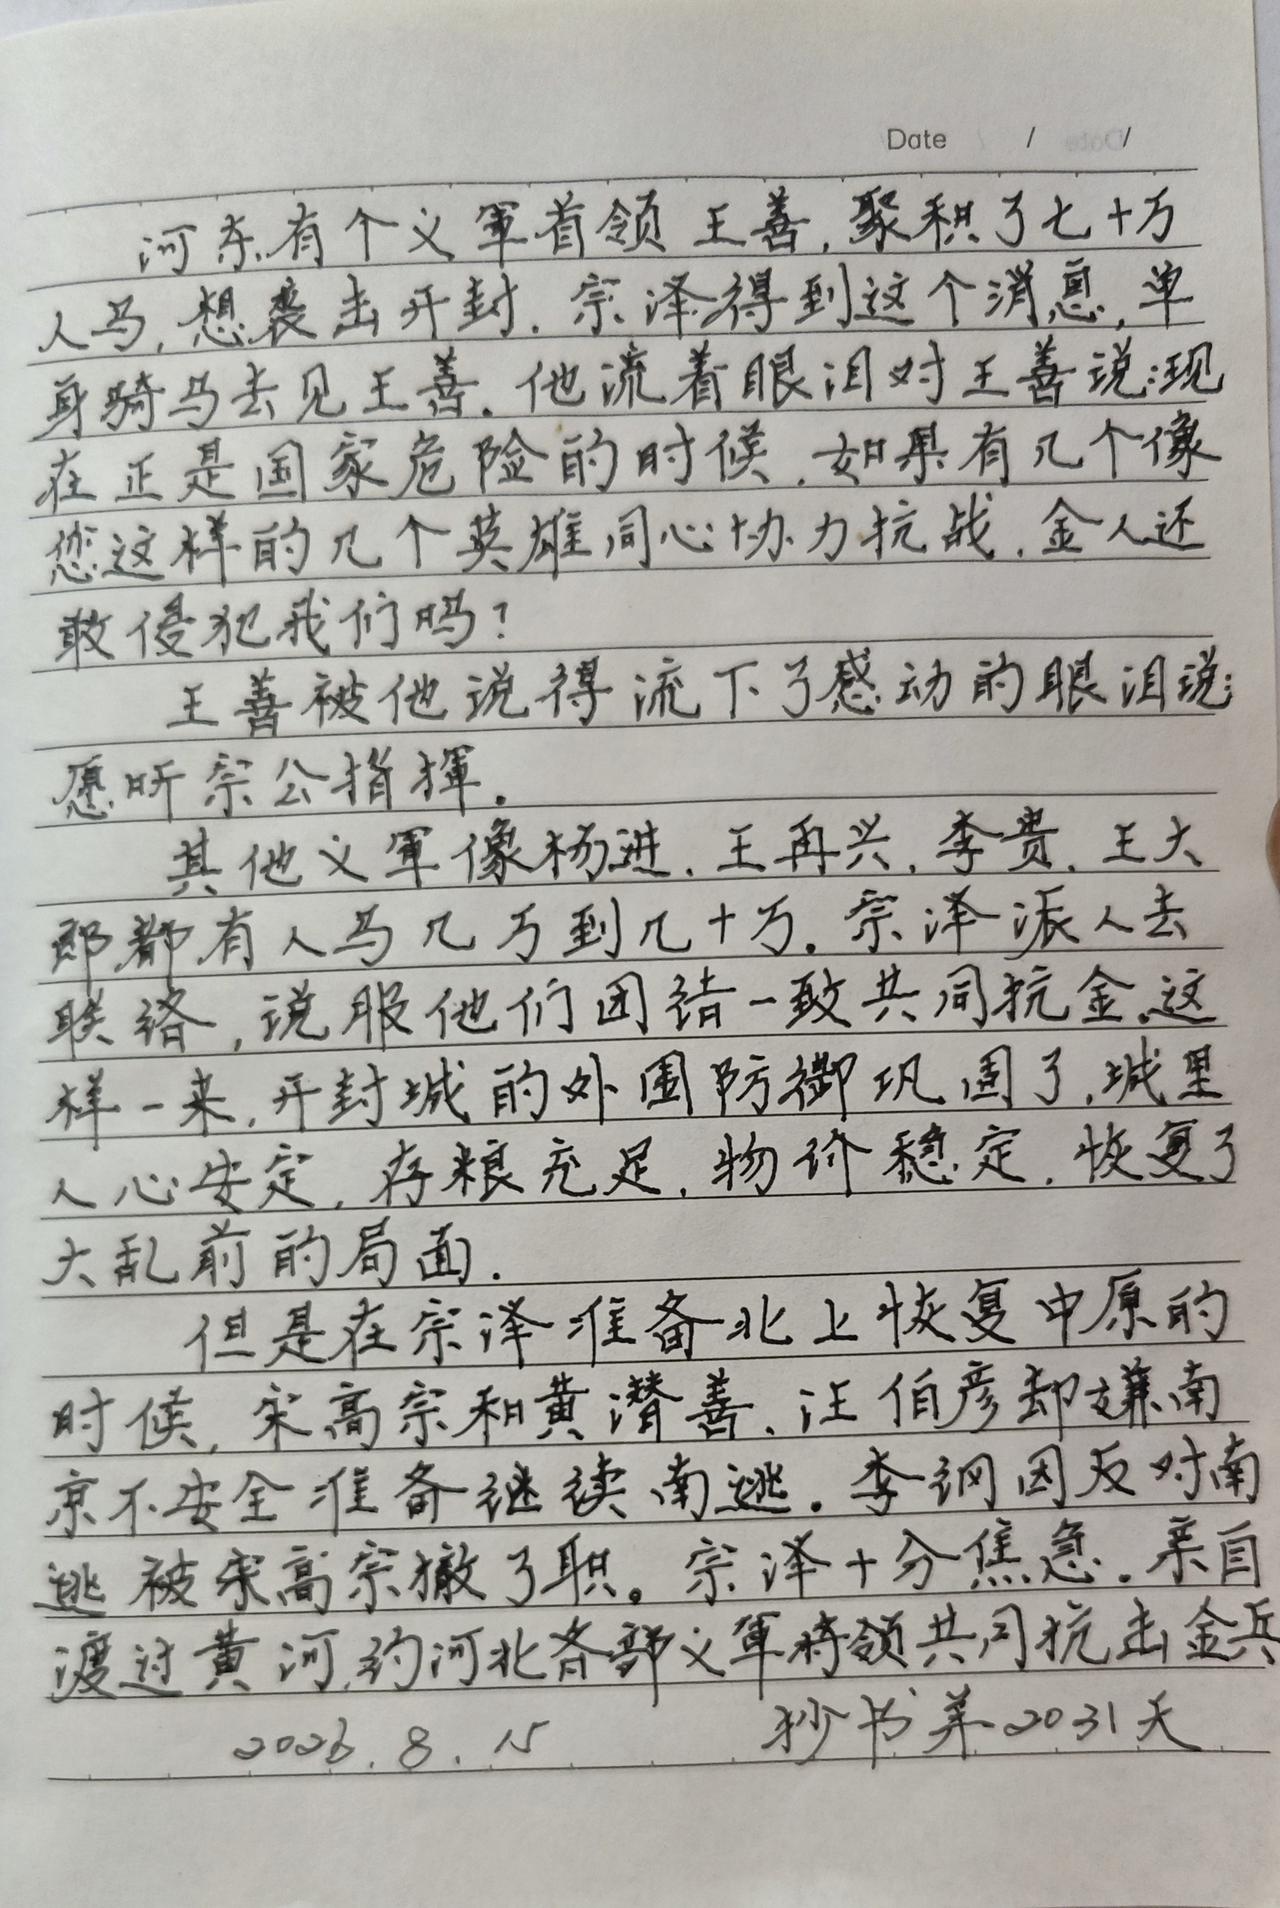 Date / /
河东有个义軍首领王善,聚积了七十万
人马,想袭击开封.宗泽得到这个消息,单
身骑马去见王善.他流着眼泪对王善说:现
在正是国家危险的时候,如果有几个像
您这样的几个英雄同心协力抗战,金人还
敢侵犯我们吗?
王善被他说得流下了感动的眼泪说:
愿听宗公指揮.
其他义軍像杨进,王再兴,李贵,王大
郎都有人马几万到几十万.宗泽派人去
联络,说服他们团结一致共同抗金.这
样一来,开封城的外围防御巩固了,城里
人心安定,存粮充足,物价稳定,恢复了
大乱前的局面.
但是在宗泽准备北上恢复中原的
时候,宋高宗和黄潜善,汪伯彦却嫌南
京不安全准备继续南逃.李纲因反对南
逃被宋高宗撤了职。宗泽十分焦急.亲自
渡过黄河,约河北各部义軍将领共同抗击金兵
2026.8.15 抄书第2031天